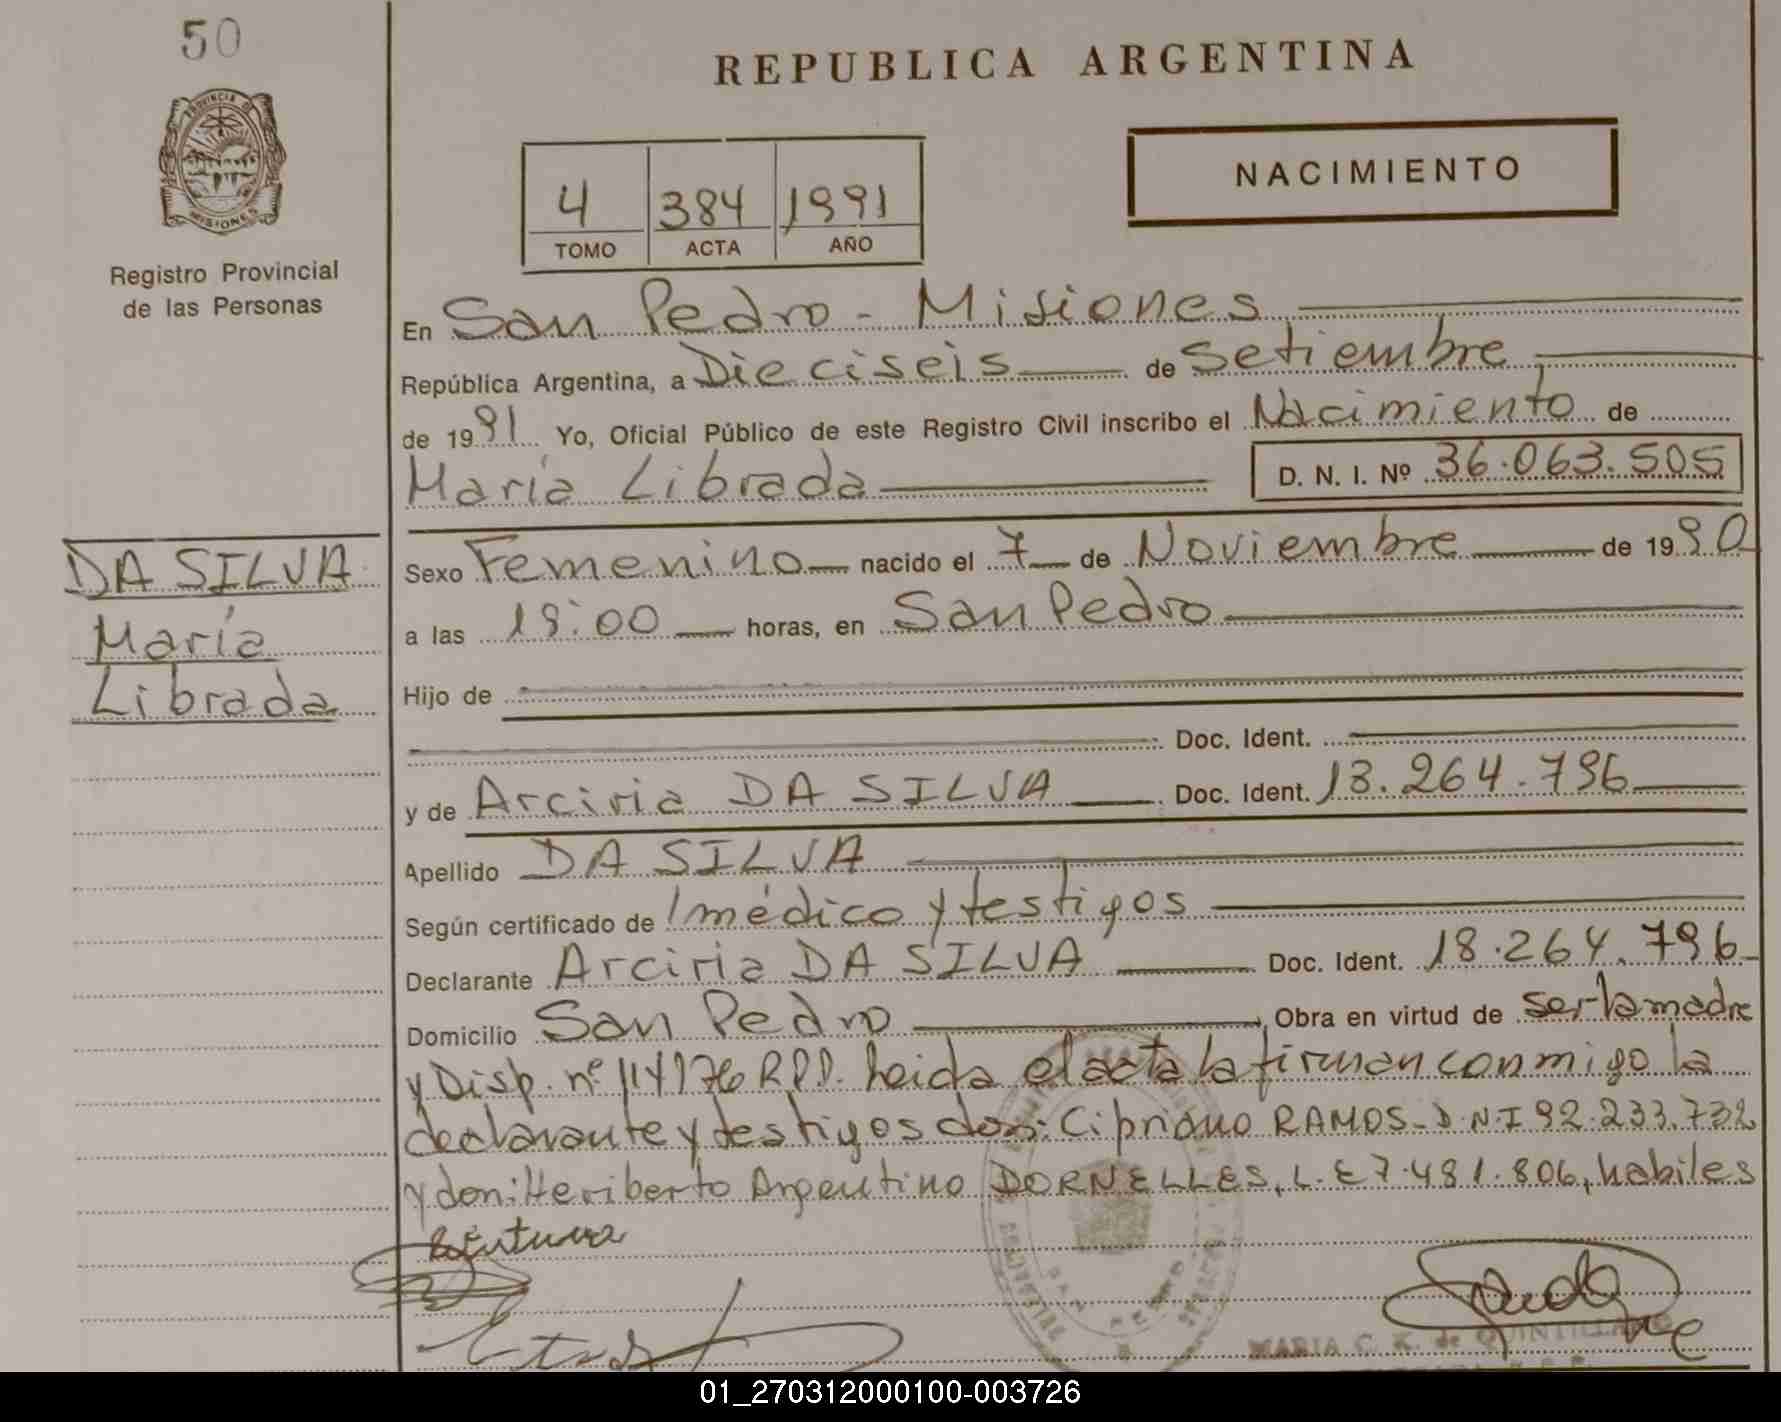 50
REPUBLICA ARGENTINA
PROVINCIA DE
MISIONES
Registro Provincial
de las Personas
NACIMIENTO
4 384 1991
TOMO ACTA AÑO
En San Pedro - Misiones
República Argentina, a Dieciseis de Setiembre
de 1991 Yo, Oficial Público de este Registro Civil inscribo el Nacimiento de
María Librada D. N. I. Nº 36.063.505
DA SILVA
María
Librada
Sexo Femenino nacido el 7 de Noviembre de 1990
a las 19:00 horas, en San Pedro
Hijo de
Doc. Ident.
y de Arciria DA SILVA Doc. Ident. 18.264.796
Apellido DA SILVA
Según certificado de médico y testigos
Declarante Arciria DA SILVA Doc. Ident. 18.264.796
Domicilio San Pedro Obra en virtud de ser la madre
y Disp. nº 114/76 R.P.P. Leida el acta la firman conmigo la
declarante y testigos don: Cipriano RAMOS - D.N.I 92.233.732
y don: Heriberto Argentino DORNELLES, L.E 7.481.806, habiles
SAN PEDRO
MARIA C. K. de QUINTILLANO
01_270312000100-003726